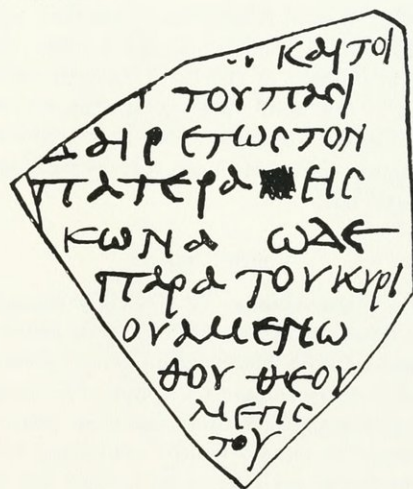 ΚΑΙΤΟΙ
ΤΟΥΠΑCΙ
ΔΑΙΡΕΤΩCΤΟΝ
ΠΑΤΕΡΑ ΕΙC
ΚΩΝΑ ΩΔΕ
ΠΑΡΑ ΤΟΥΚΥΡΙ
ΟΥΑΜΕΝΩ
ΘΟΥ ΘΕΟΥ
ΜΕΓΙC
ΤΟΥ